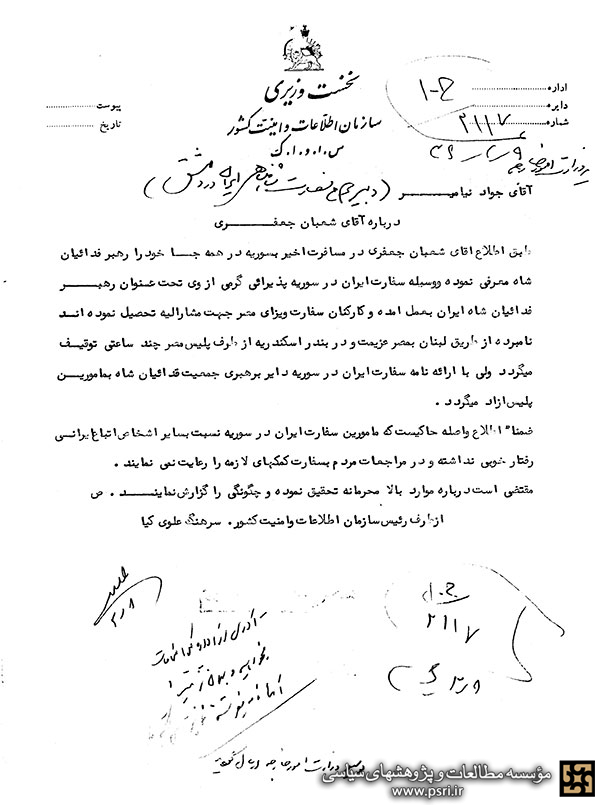 نخست وزیری
سازمان اطلاعات و امنیت کشور
س.ا.و.ا.ک
اداره
دایره
شماره
۲۱۱۷
پیوست
تاریخ
آقای جواد نیامیر
درباره آقای شعبان جعفری
طبق اطلاع اقای شعبان جعفری در مسافرت اخیر بسوریه در همه جا خود را رهبر فدائیان
شاه معرفی نموده ووسیله سفارت ایران در سوریه پذیرائی گرمی از وی تحت عنوان رهبر
فدائیان شاه ایران بعمل امده و کارکنان سفارت ویزای مصر جهت مشارالیه تحصیل نموده اند
نامبرده از طریق لبنان بمصر عزیمت و در بندر اسکندریه از طرف پلیس مصر چند ساعتی توقیف
میگردد ولی با ارائه نامه سفارت ایران در سوریه دایر برهبری جمعیت فدائیان شاه بمامورین
پلیس ازاد میگردد .
ضمنا" اطلاع واصله حاکیست که مامورین سفارت ایران در سوریه نسبت بسایر اشخاص اتباع ایرانی
رفتار خوبی نداشته و در مراجعات مردم بسفارت کمکهای لازمه را رعایت نمی نمایند .
مقتضی است درباره موارد بالا محرمانه تحقیق نموده و چگونگی را گزارش نمایند . ص
از طرف رئیس سازمان اطلاعات وامنیت کشور. سرهنگ علوی کیا
۲۱۱۷
وزارت امور خارجه ارسال
مؤسسه مطالعات و پژوهشهای سیاسی
www.psri.ir